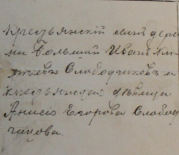 крестьянскій сынъ дерев
ни Большой Иванъ
Слободчиковъ и
крестьянская дѣвица
Анисія Егорова Слобод
чикова.